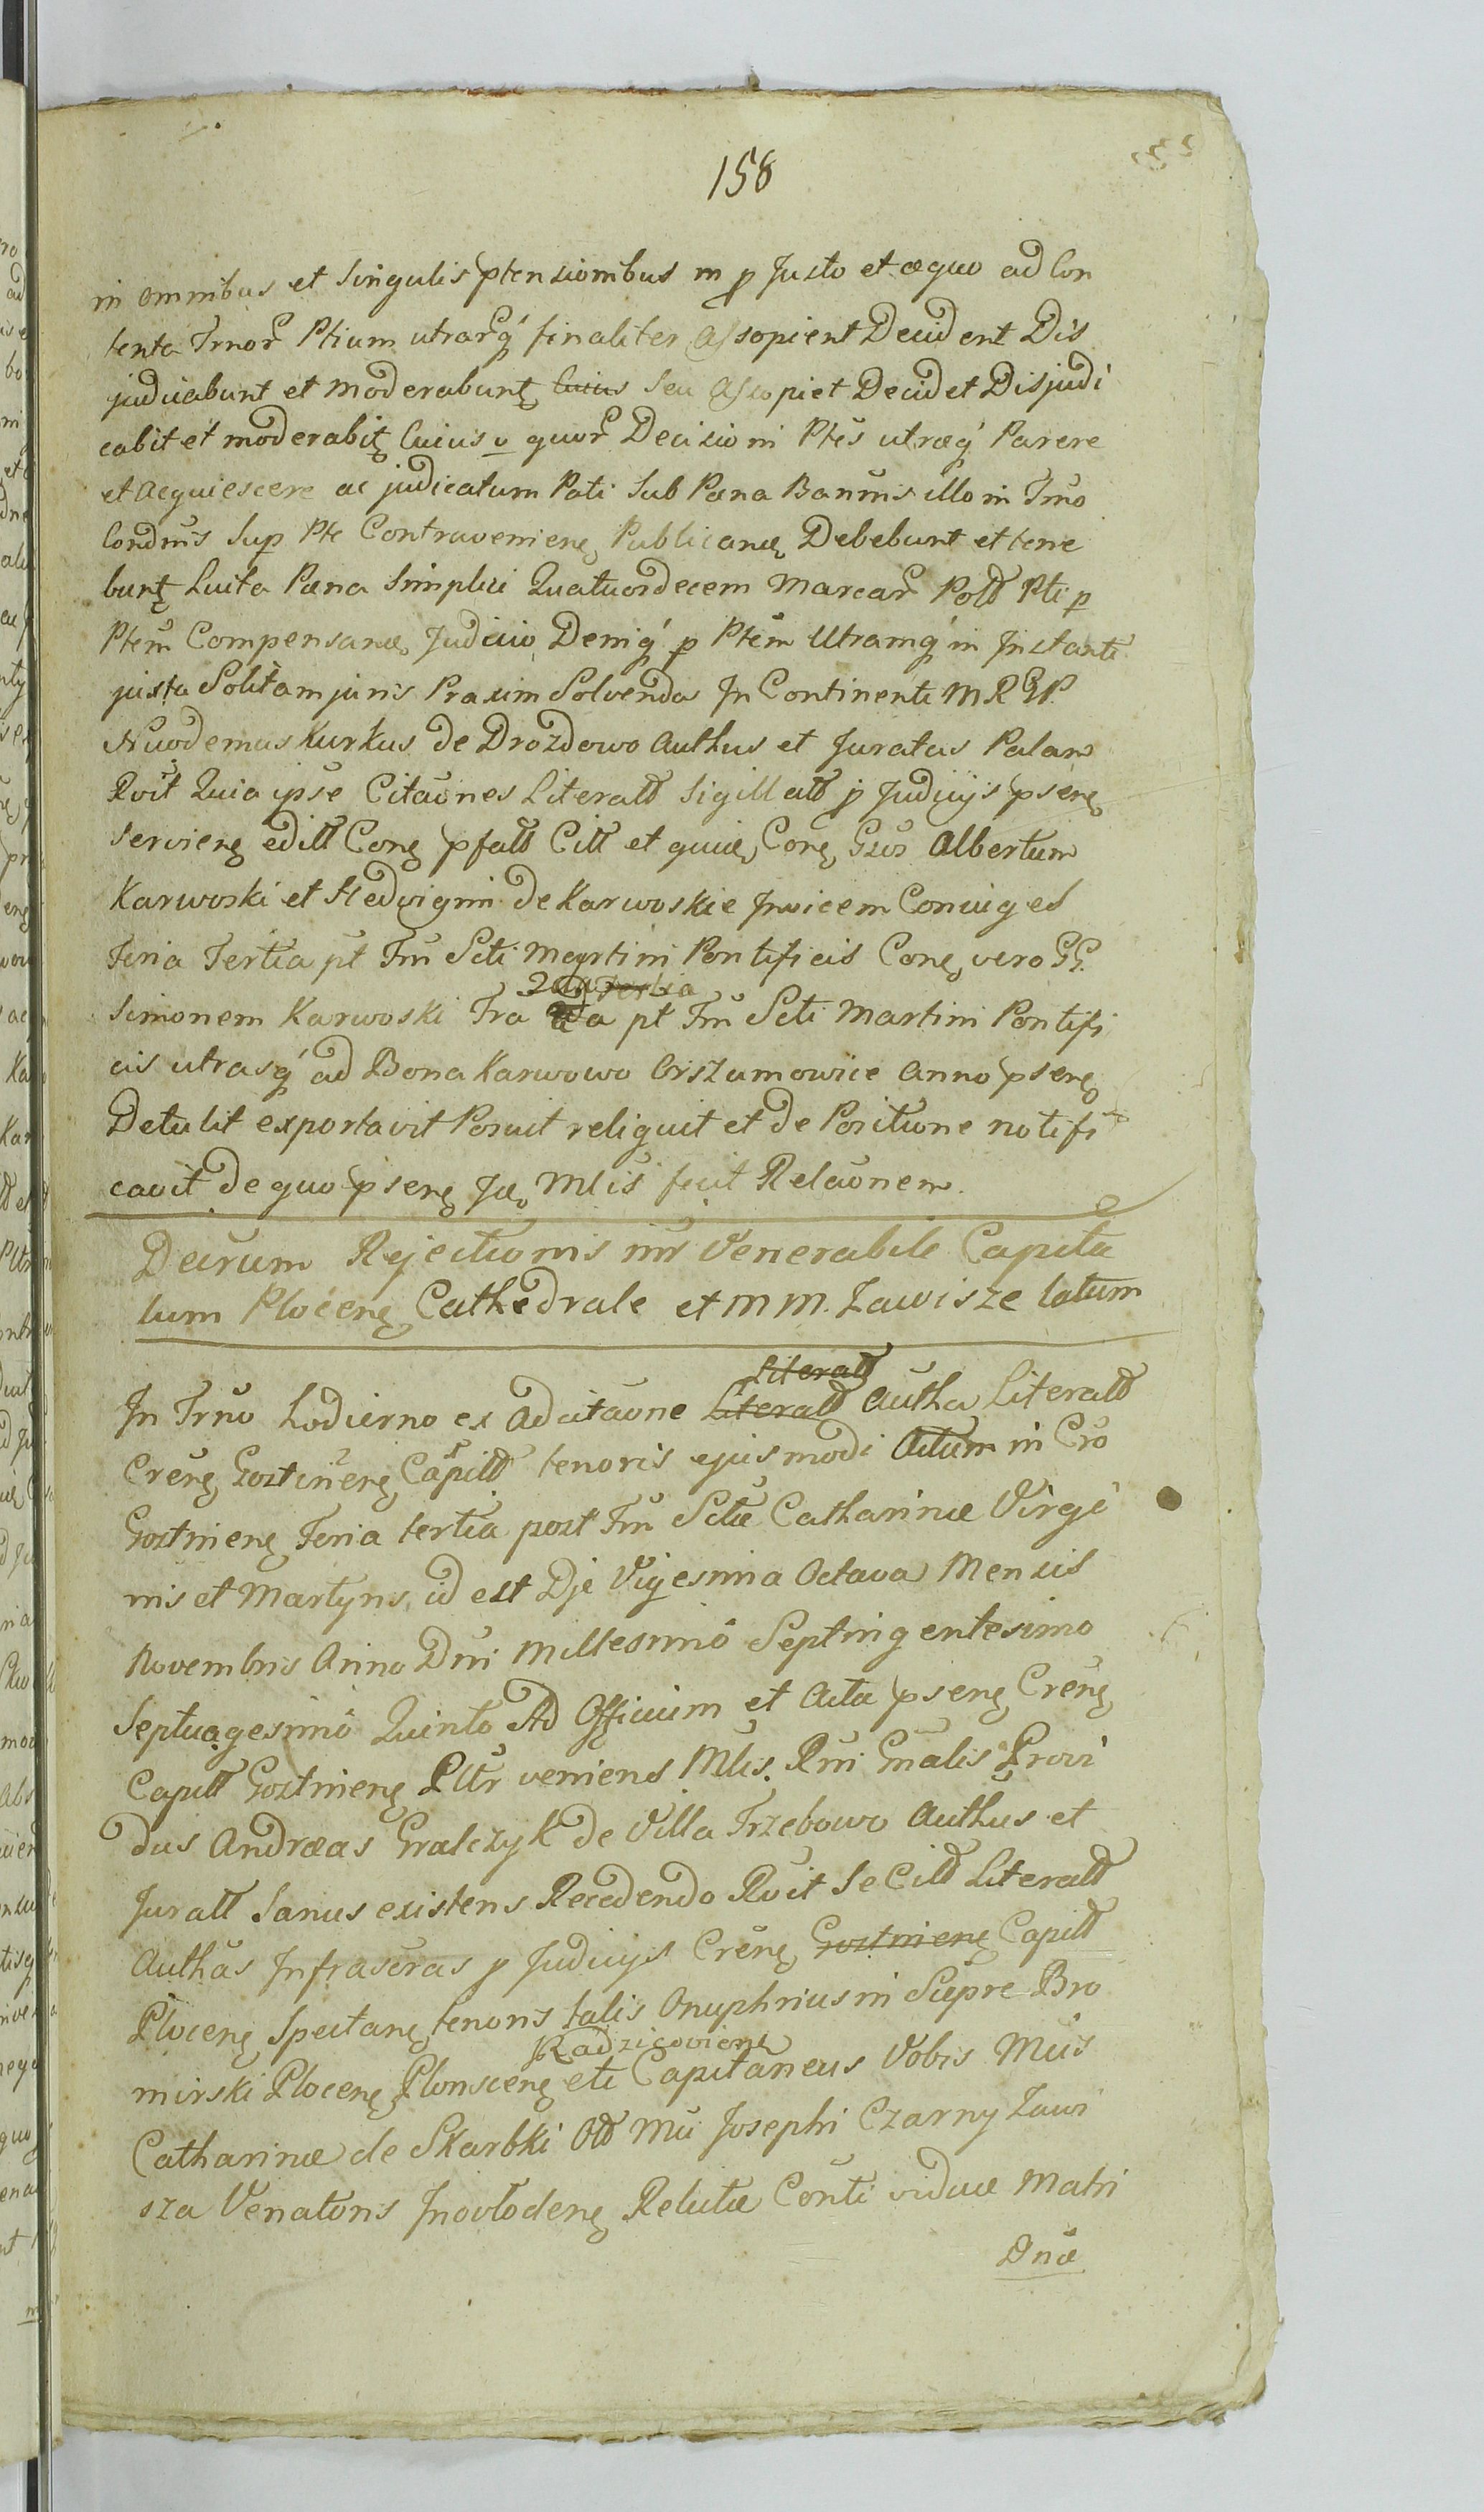 158
in omnibus et Singulis ptensionibus in p Justo et æquo ad Con
tenta Trnor Ptium utrarq finaliter Assopient Decident Dis
judicabunt et moderabunt Cuius Seu Assopiet Decidet Disjudi
cabit et moderabit Cuius v quor Decisioni Ptes utræq Parere
et Acquiescere ac judicatum Pati Sub Pæna Bannis illo in Trno
Condnis Sup Pte Contravenien Publican Debebunt et tene
bunt Luita Pæna Simplici Quatuordecem Marcar Poll Pti p
Ptem Compensan Judicio Deniq p Ptem Utramq in Instanti
juxta Solitam juris Praxim Solvenda In Continenti M R GP.
Nicodemus Kurkus de Drozdowo Authus et Juratus Palam
Rvit Quia ipse Citaones Literall Sigillall p Judicijs psen
Servien edill Con pfall Cill et quid Con Gsos Albertum
Karwoski et Hedvigim de Karwoskie Invicem Coniuges
Feria Tertia pt Fm Scti Martini Pontificis Con vero GG.
2da Tertia
Simonem Karwoski Fra 2da pt Fm Scti Martini Pontifi
cis utrasq ad Bona Karwowo Orszumowice Anno psen
Detulit exportavit Posuit reliquit et de Positione notifi
cavit de quo psen Jd Mlis fecit Relaonem.
Decrum Rejectionis inr Venerabile Capitu
lum Plocen Cathedrale et M M. Zawisze latum
Literall
In Trno hodierno ex Adcitaone Literall Autha Literall
Cren Gostinen Capill tenoris ejusmodi Actum in Cro
Gostinen Feria tertia post Fm Sctæ Catharinæ Virgi
nis et Martyris, id est Dje Vigesima Octava Mensis
Novembris Anno Dni Millesimo Septingentesimo
Septuagesimo Quinto Ad Officium et Acta psen Cren
Capill Gostinen Pllr veniens Mlis. Rni Gnalis Provi
dus Andræas Gralczyk de Villa Trzebowo Authus et
Jurall Sanus existens Recedendo Rvit Se Cill Literall
Authas Infrascras p Judicijs Cren Gostinen Capill
Plocen Spectan tenoris talis Onuphrius in Siepre Bro
Radzieovien
mirski Plocen Plonscen etc Capitaneus Vobis Mcis
Catharinæ de Skarbki Oll Mci Josephi Czarny Zawi
sza Venatoris Inowloden Relictæ Conti viduæ Matri
Dnæ